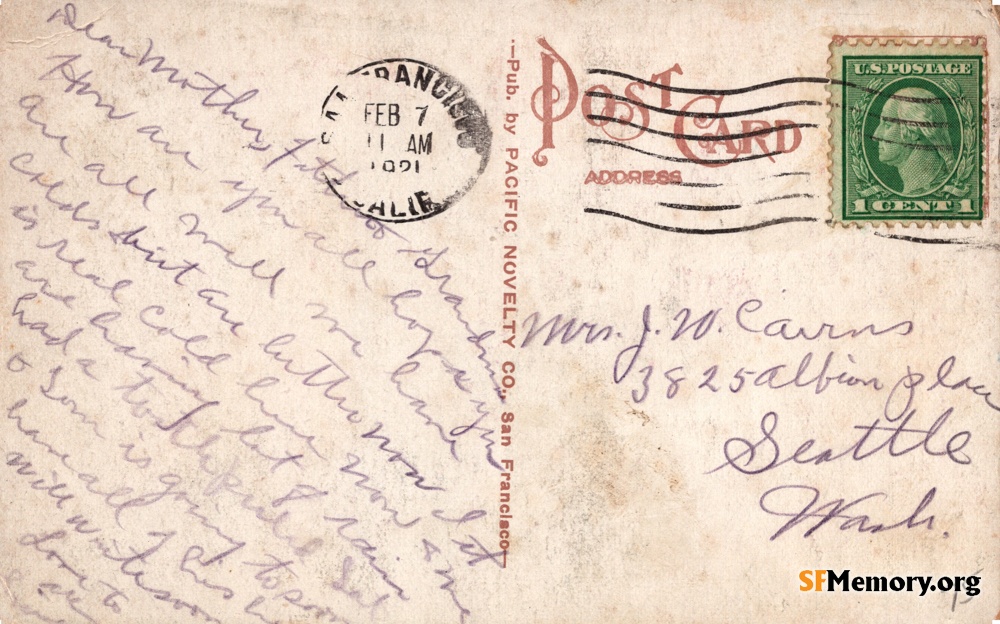 Dear Mother, Fat
& Grandma
How are you all hope you
are all well we have
colds but are better now it
is real cold here now & we
are having lot of rain
had a tooth pulled Sat
& Tom is going to soon
have all of his
will write soon
Love to
all
SAN FRANCISCO
FEB 7
11 AM
1921
CALIF.
—Pub. by PACIFIC NOVELTY CO., San Francisco—
POST CARD
ADDRESS
U.S. POSTAGE
1 CENT 1
Mrs. J. W. Cairns
3825 Albion place
Seattle
Wash.
15
SFMemory.org